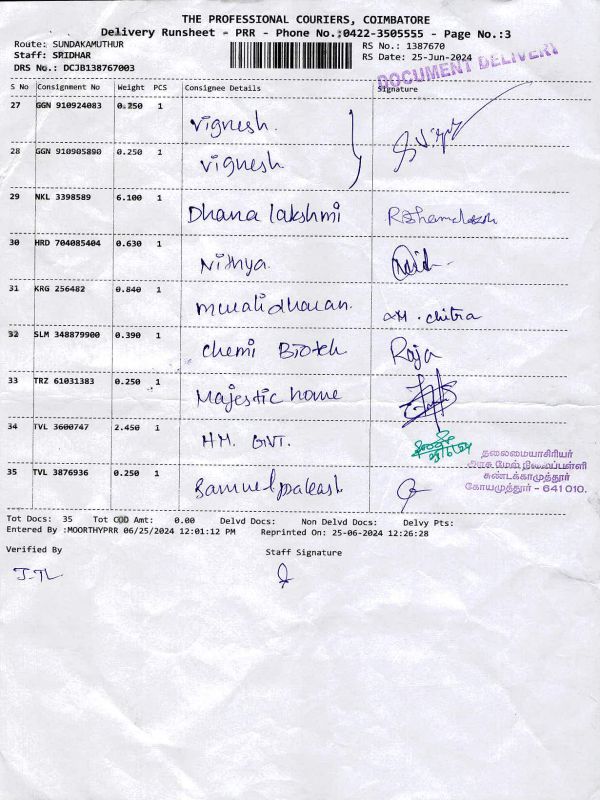 THE PROFESSIONAL COURIERS, COIMBATORE
Delivery Runsheet - PRR - Phone No.:0422-3505555 - Page No.:3
Route: SUNDAKAMUTHUR RS No.: 1387670
Staff: SRIDHAR RS Date: 25-Jun-2024
DRS No.: DCJB138767003
DOCUMENT DELIVERY
S No Consignment No Weight PCS Consignee Details Signature
27 GGN 910924083 0.250 1 Vignesh
28 GGN 910905890 0.250 1 Vignesh
29 NKL 3398589 6.100 1 Dhana lakshmi
30 HRD 704085404 0.630 1 Nithya
31 KRG 256482 0.840 1 muralidharan. M. chitra
32 SLM 348879900 0.390 1 chemi Biotech Raja
33 TRZ 61031383 0.250 1 Majestic home
34 TVL 3600747 2.450 1 HM. GVT.
தலைமையாசிரியர்
அரசு மேல் நிலைப்பள்ளி
சுண்டக்காமுத்தூர்
கோயமுத்தூர் - 641 010.
35 TVL 3876936 0.250 1 Samuel prakash
Tot Docs: 35 Tot COD Amt: 0.00 Delvd Docs: Non Delvd Docs: Delvy Pts:
Entered By :MOORTHYPRR 06/25/2024 12:01:12 PM Reprinted On: 25-06-2024 12:26:28
Verified By Staff Signature